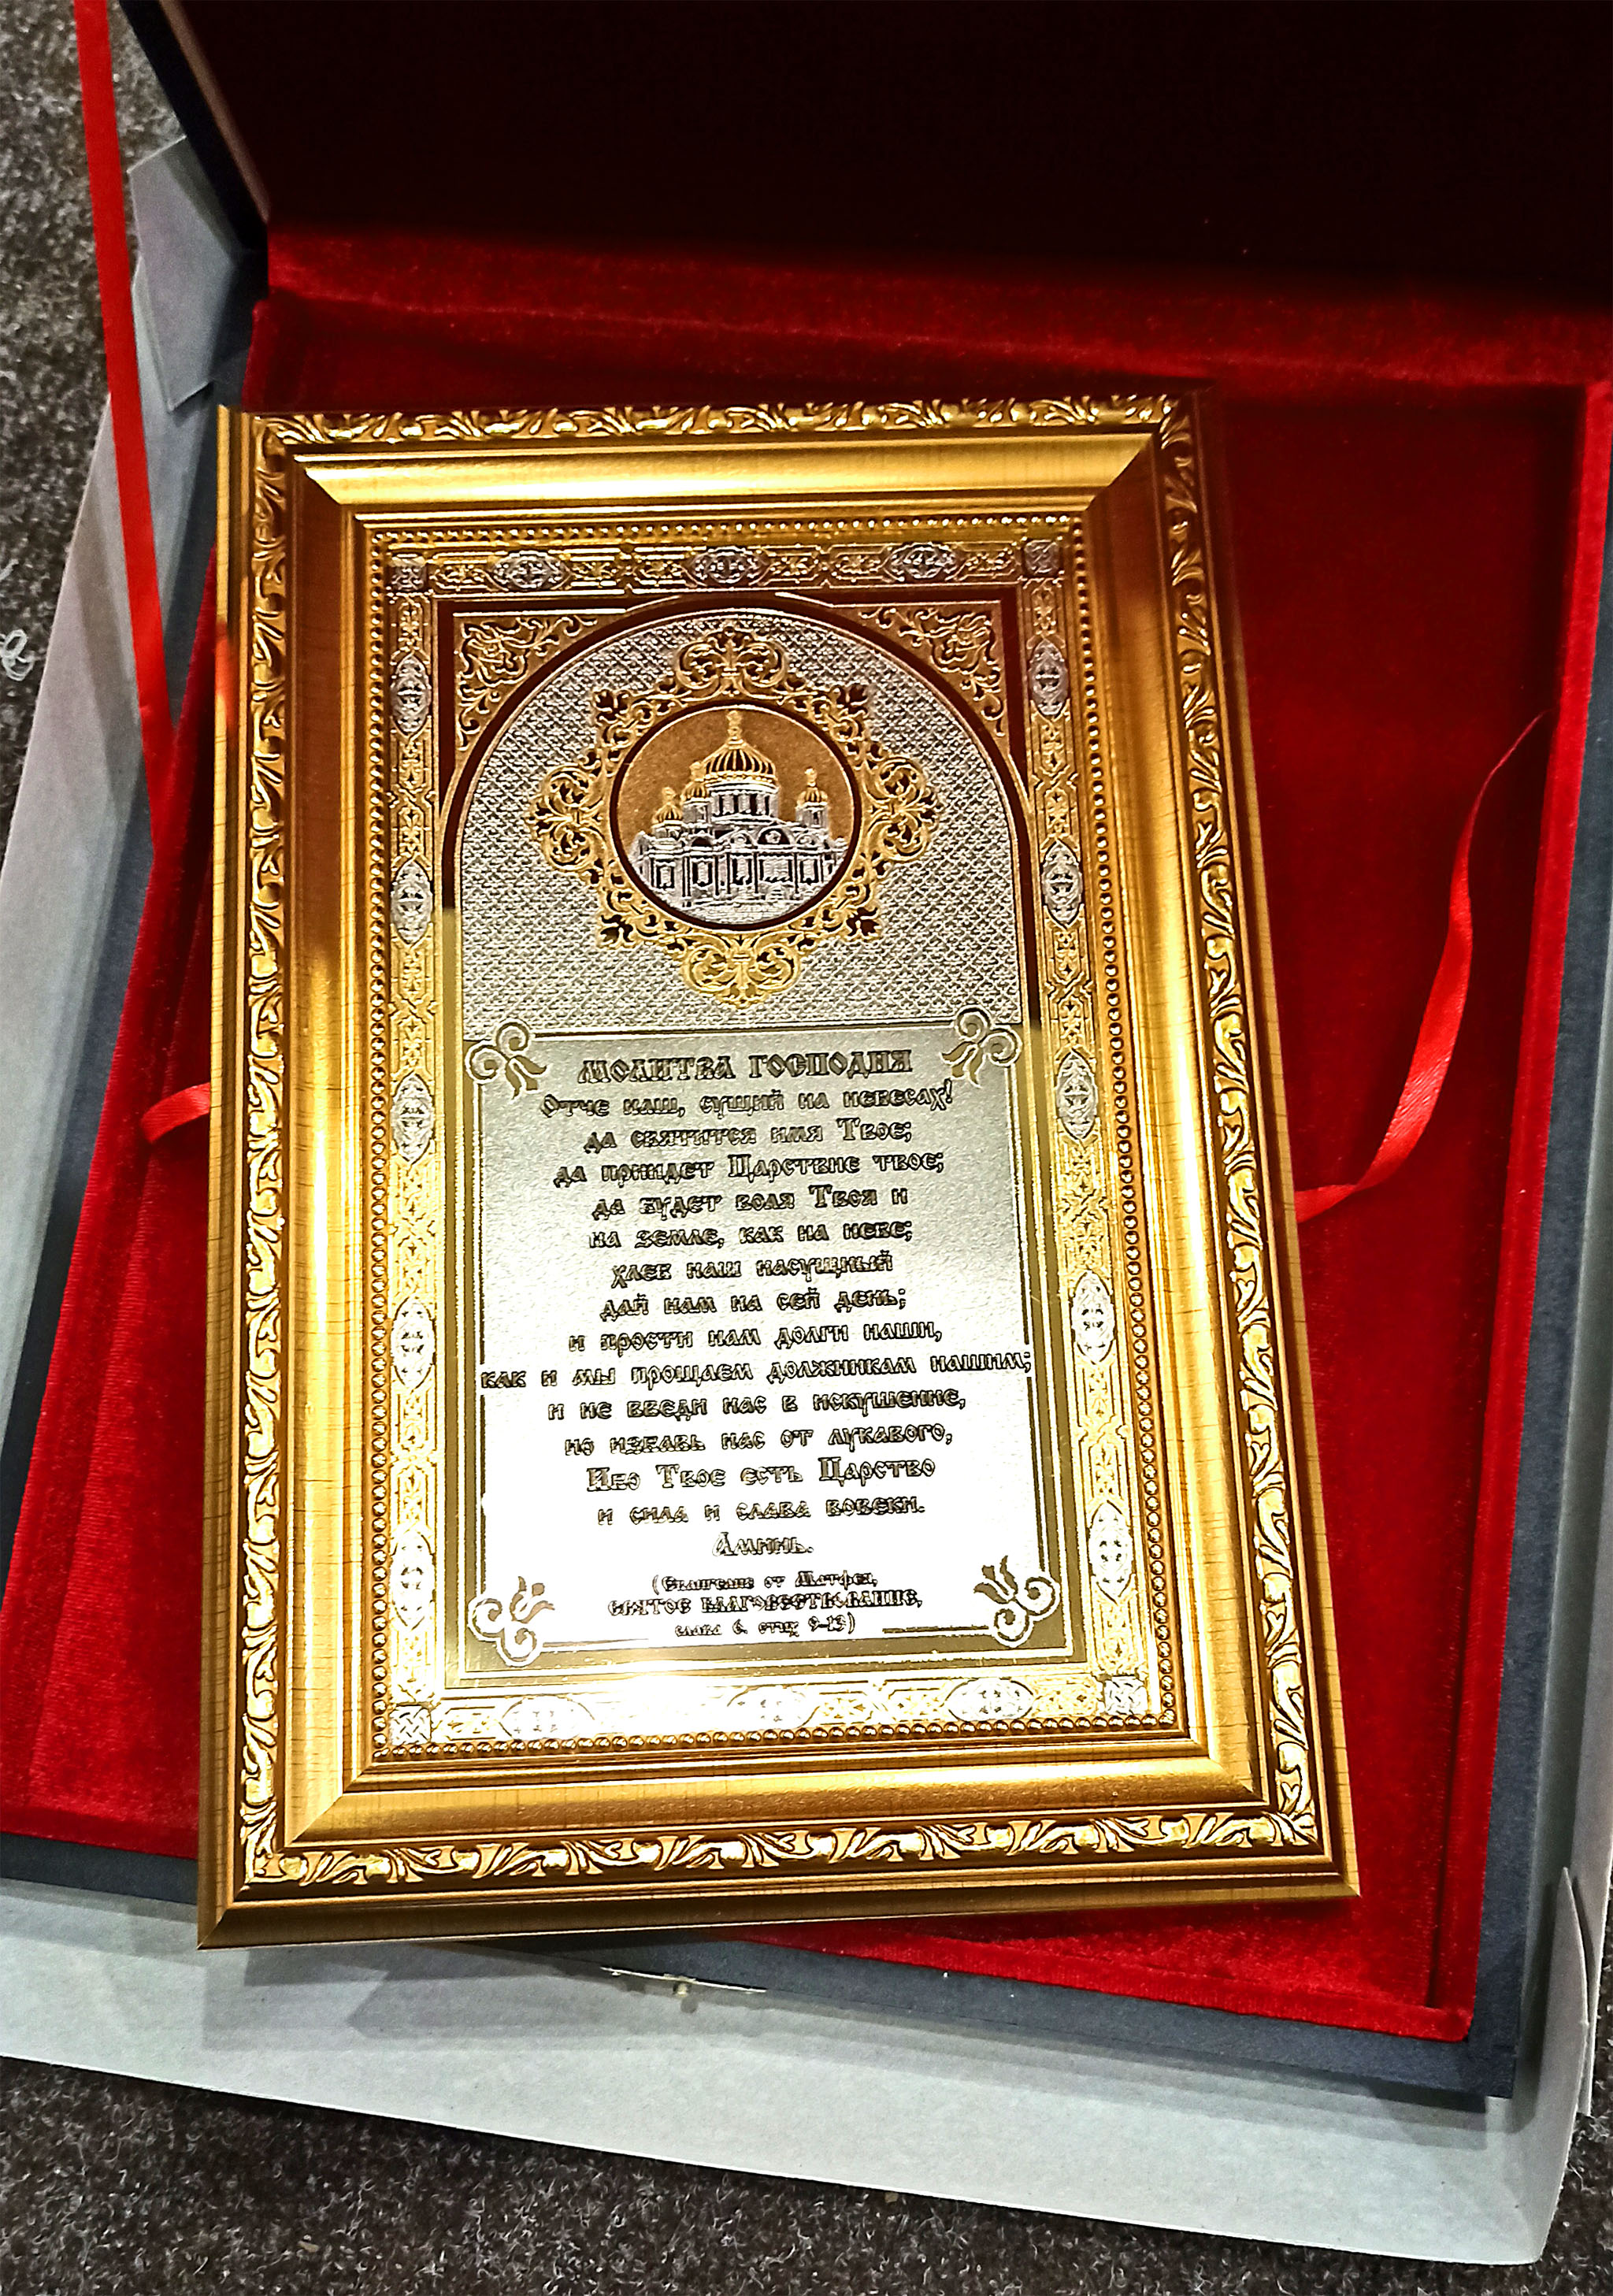 Молитва Господня
Отче наш, сущий на небесах!
да святится имя Твое;
да приидет Царствие твое;
да будет воля Твоя и
на земле, как на небе;
хлеб наш насущный
дай нам на сей день;
и прости нам долги наши,
как и мы прощаем должникам нашим;
и не введи нас в искушение,
но избавь нас от лукавого,
Ибо Твое есть Царство
и сила и слава вовеки.
Аминь.
(Евангелие от Матфея,
святое благовествование,
глава 6. стих 9-13)